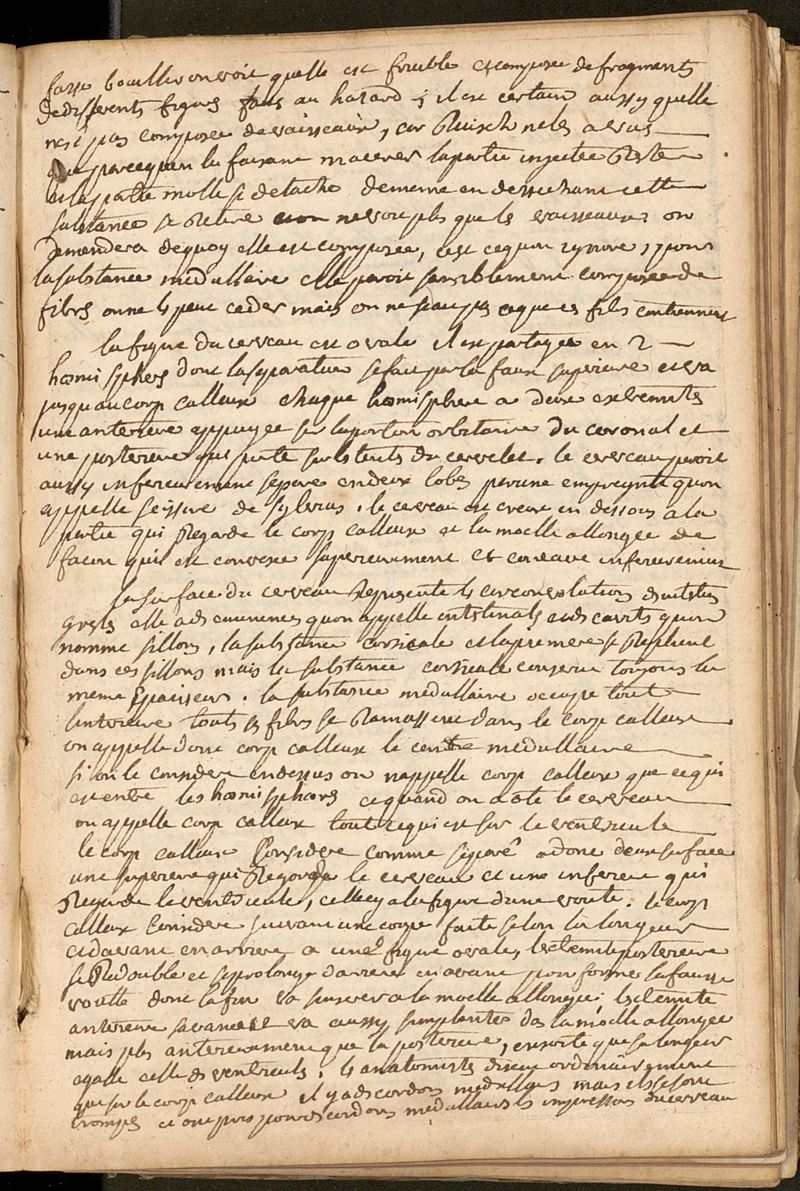 fasse bouillir on voit quelle est friable et composee de fragments
de differents figures fais au hazard ; il est certain aussy quelle
nest pas composee de vaisseaux, car Ruisch ne les a vus
que parcequen la faisant macerer la partie injectee Reste
et la partie molle se detache de meme en dessechant cette
substance se Retire et on ne voit plus que les vaisseaux on
demandera dequoy elle est composee, cest cequon ignore, pour
la substance medullaire elle paroit sensiblement composee de
fibres on ne le peut ceder mais on ne scait pas ce que ces fibs contiennent
la figure du cerveau est ovale il est partagee en 2
hœmispheres dont la separation se fait par la faux superieure et va
jusquau corp calleux chaque hœmisphere a deux extremites
une anterieure appuyee sur la portion orbitaire du coronal et
une posterieure qui porte sur la tente du cervelet. le cerveau paroit
aussy inferieurement separe en deux lobes par une empreynte quon
appelle scissure de Sylvius. le cerveau est creux en dessous a la
partie qui Regarde le corp calleux et la moelle allongee de
facon quil est convexe superieurement et concave inferieurement
la surface du cerveau Represente les circonvolutions des intestins
greles elle a des eminences quon appelle intestinals et des cavites quon
nomme sillons, la substance corticale et la premere se Replient
dans ces sillons mais la substance corticale conserve toujours la
meme Epaisseur. la substance medullaire occupe tout
linterieure touts ses fibres se Ramassent dans le corp calleux
on appelle donc corp calleux le centre medullaire
si on le considere en dessus on nappelle corp calleux que ce qui
est entre les hœmispheres et quand on a oté le cerveau
on appelle corp calleux tout ce qui est sur le ventricule
le corp calleux Considere comme separé a donc deux surface
une superieure qui Regarde le cerveau et une inferieure qui
Regarde le ventricule, celle cy a la figure dune voute. le corp
calleux Considere suivant une coupe faite selon la longueur
et davant en arriere a une figure ovale, lextremite posterieure
se Redouble et se prolonge darriere en avant pour former la fausse
voutte dont la fin va sinserer a la moelle allongee; lextremite
anterieure savance et va aussy simplanter das la moelle allongee
mais plus anterieurement que la posterieure, ensorte que sa longueur
egalle celle des ventricules. les anatomists disent ordinairement
que sur le corp calleux il y a des cordons medullaires mais ils se sont
trompes et ont pris pour des cordons medullaires les impressions du cerveau